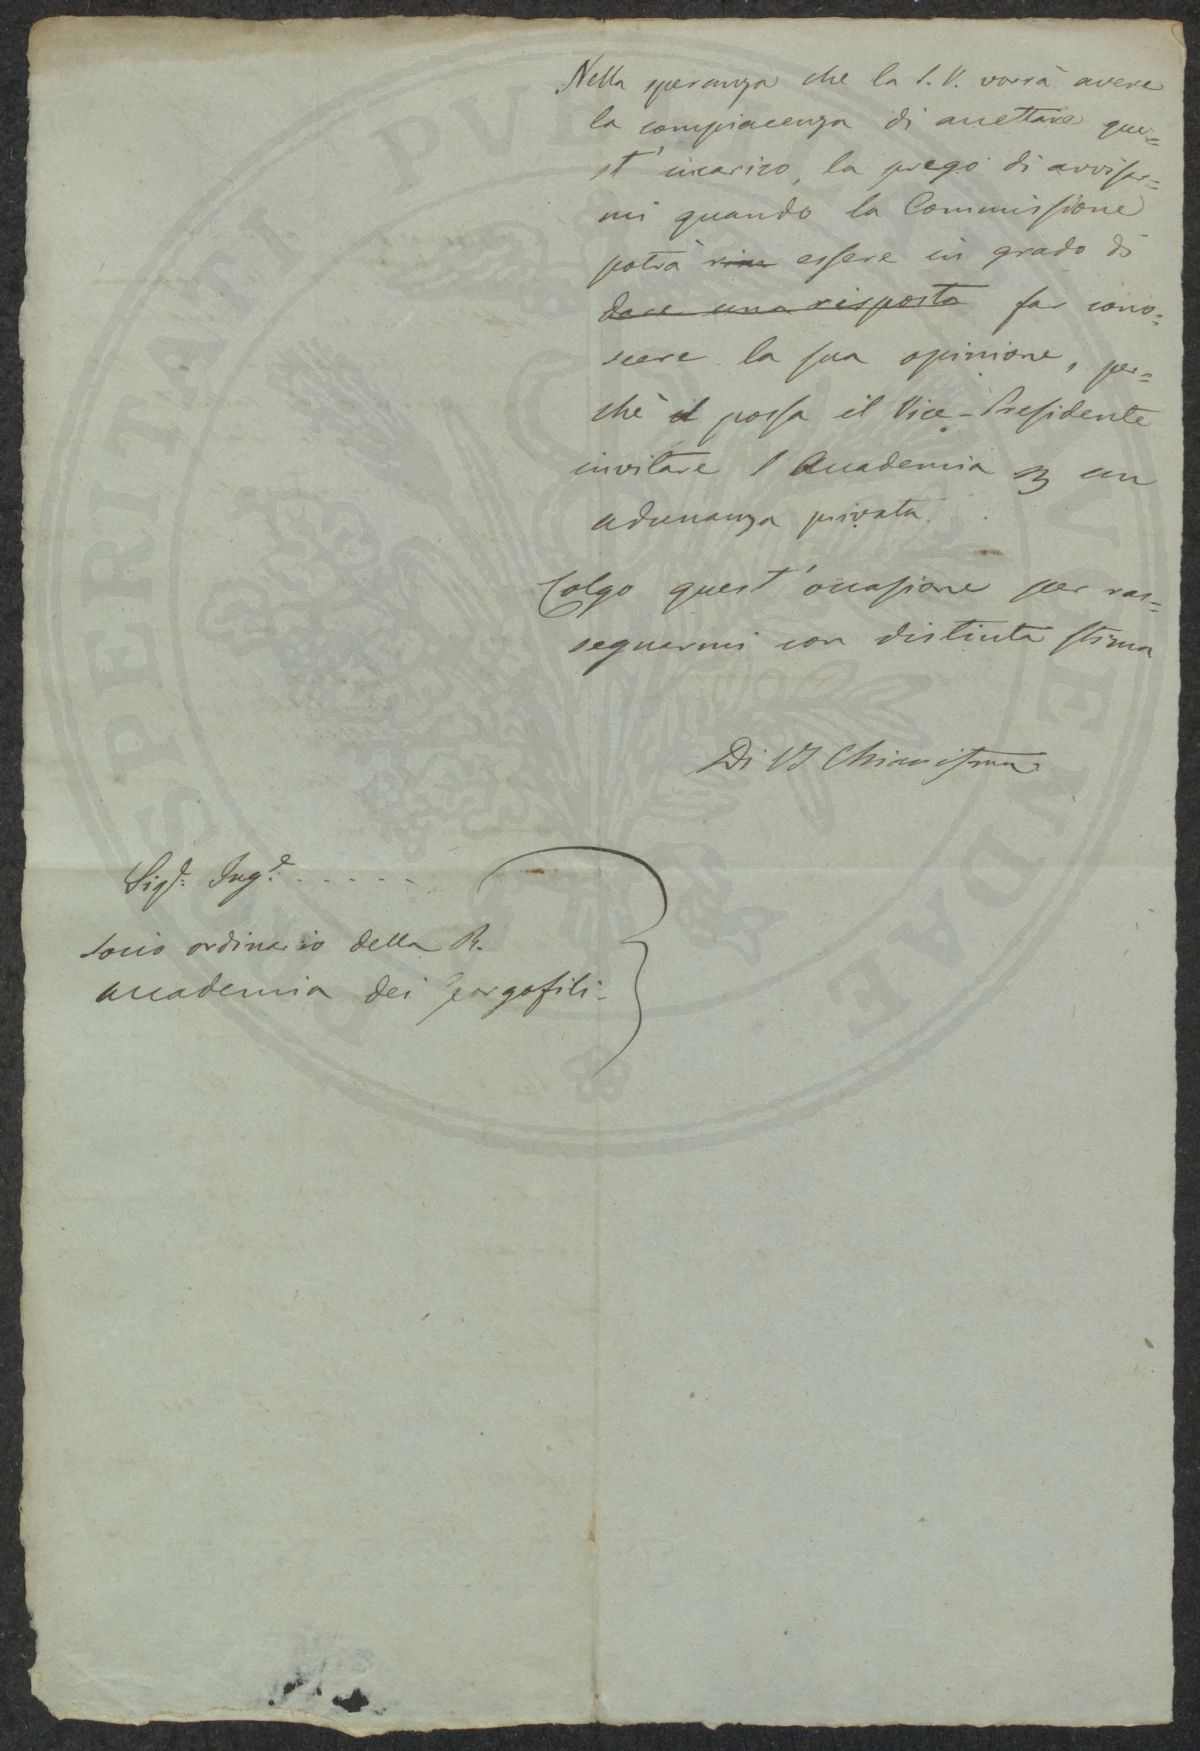 Nella speranza che la S. V. vorrà avere
la compiacenza di accettare que=
st' incarico, la prego di avvisar=
mi quando la Commissione
potrà essere in grado di
dare una risposta far cono=
scere la sua opinione, per=
chè possa il Vice-Presidente
invitare l'Accademia ad un
adunanza privata.
Colgo quest'occasione per ras=
segnarmi con distinta stima
Di VS Chiarissima
Sigr. Inge. . . . . .
socio ordinario della R.
Accademia dei Georgofili.
PROSPERITATI PVBLICAE AVGENDAE